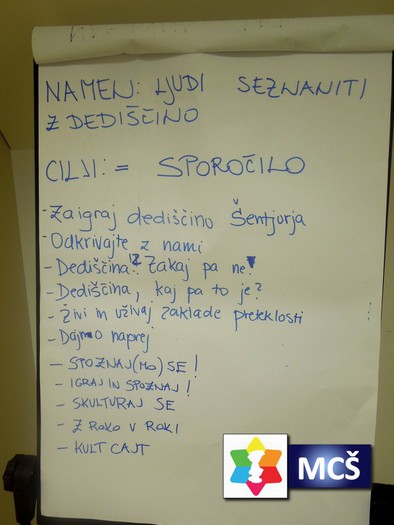 NAMEN: LJUDI SEZNANITI
Z DEDIŠČINO
CILJI: = SPOROČILO
- Zaigraj dediščino Šentjurja
- Odkrivajte z nami
- Dediščina? Zakaj pa ne!
- Dediščina, kaj pa to je?
- Živi in uživaj zaklade preteklosti
- Dajmo naprej
- SPOZNAJ(MO) SE!
- IGRAJ IN SPOZNAJ!
- SKULTURAJ SE
- Z ROKO V ROKI
- KULT CAJT
MCŠ